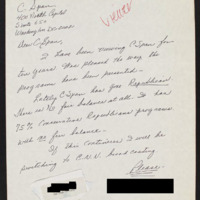 C. Span
400 North Capitol
Suite 650
Washington
Dear C. Span,
I have been viewing C. Span for
two years. Was pleased the way the
programs have been presented.
Lately C. Span has gone Republican.
There is no fair balance at all. It has
75% Conservative Republicans programs
with no fair balance.
If this continues I will be
switching to C.N.N. broadcasting